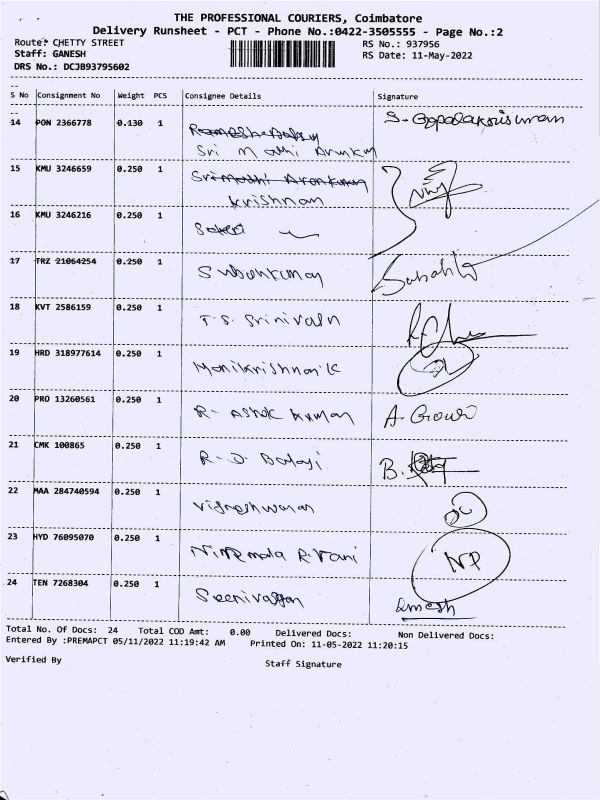 THE PROFESSIONAL COURIERS, Coimbatore
Delivery Runsheet - PCT - Phone No.:0422-3505555 - Page No.:2
Route: CHETTY STREET RS No.: 937956
Staff: GANESH RS Date: 11-May-2022
DRS No.: DCJB93795602
S No Consignment No Weight PCS Consignee Details Signature
14 PON 2366778 0.130 1 S. Gopalakrishnan
Sri Mathi Arunkum
15 KMU 3246659 0.250 1
Krishnan
16 KMU 3246216 0.250 1
17 TRZ 21064254 0.250 1
18 KVT 2586159 0.250 1 T.S. Srinivasn
19 HRD 318977614 0.250 1 Manikrishnan K
20 PRO 13260561 0.250 1 R. Ashok Kumar A. Gowri
21 CMK 100865 0.250 1 R. D. Balaji B.
22 MAA 284740594 0.250 1 Vigneshwaran
23 HYD 76095070 0.250 1 Nirmala R. Vani NP
24 TEN 7268304 0.250 1 Seenivasan Umesh
Total No. Of Docs: 24 Total COD Amt: 0.00 Delivered Docs: Non Delivered Docs:
Entered By :PREMAPCT 05/11/2022 11:19:42 AM Printed On: 11-05-2022 11:20:15
Verified By Staff Signature